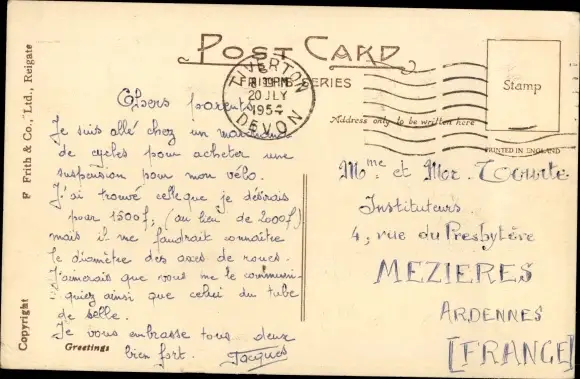 POST CARD
FRITH'S SERIES
TIVERTON
DEVON
20 JLY
1954
Stamp
Address only to be written here
PRINTED IN ENGLAND
F Frith & Co., Ltd., Reigate
Copyright
Chers parents,
Je suis allé chez un marchand
de cycles pour acheter une
suspension pour mon vélo.
J'ai trouvé celle que je désirais
pour 1500f, (au lieu de 2000f)
mais il me faudrait connaître
le diamètre des axes de roues.
J'aimerais que vous me le communi-
quiez ainsi que celui du tube
de selle.
Je vous embrasse tous deux
bien fort. Jacques
Greetings
Mme et Mor
Instituteurs
4, rue du Presbytère
MEZIERES
ARDENNES
[FRANCE]